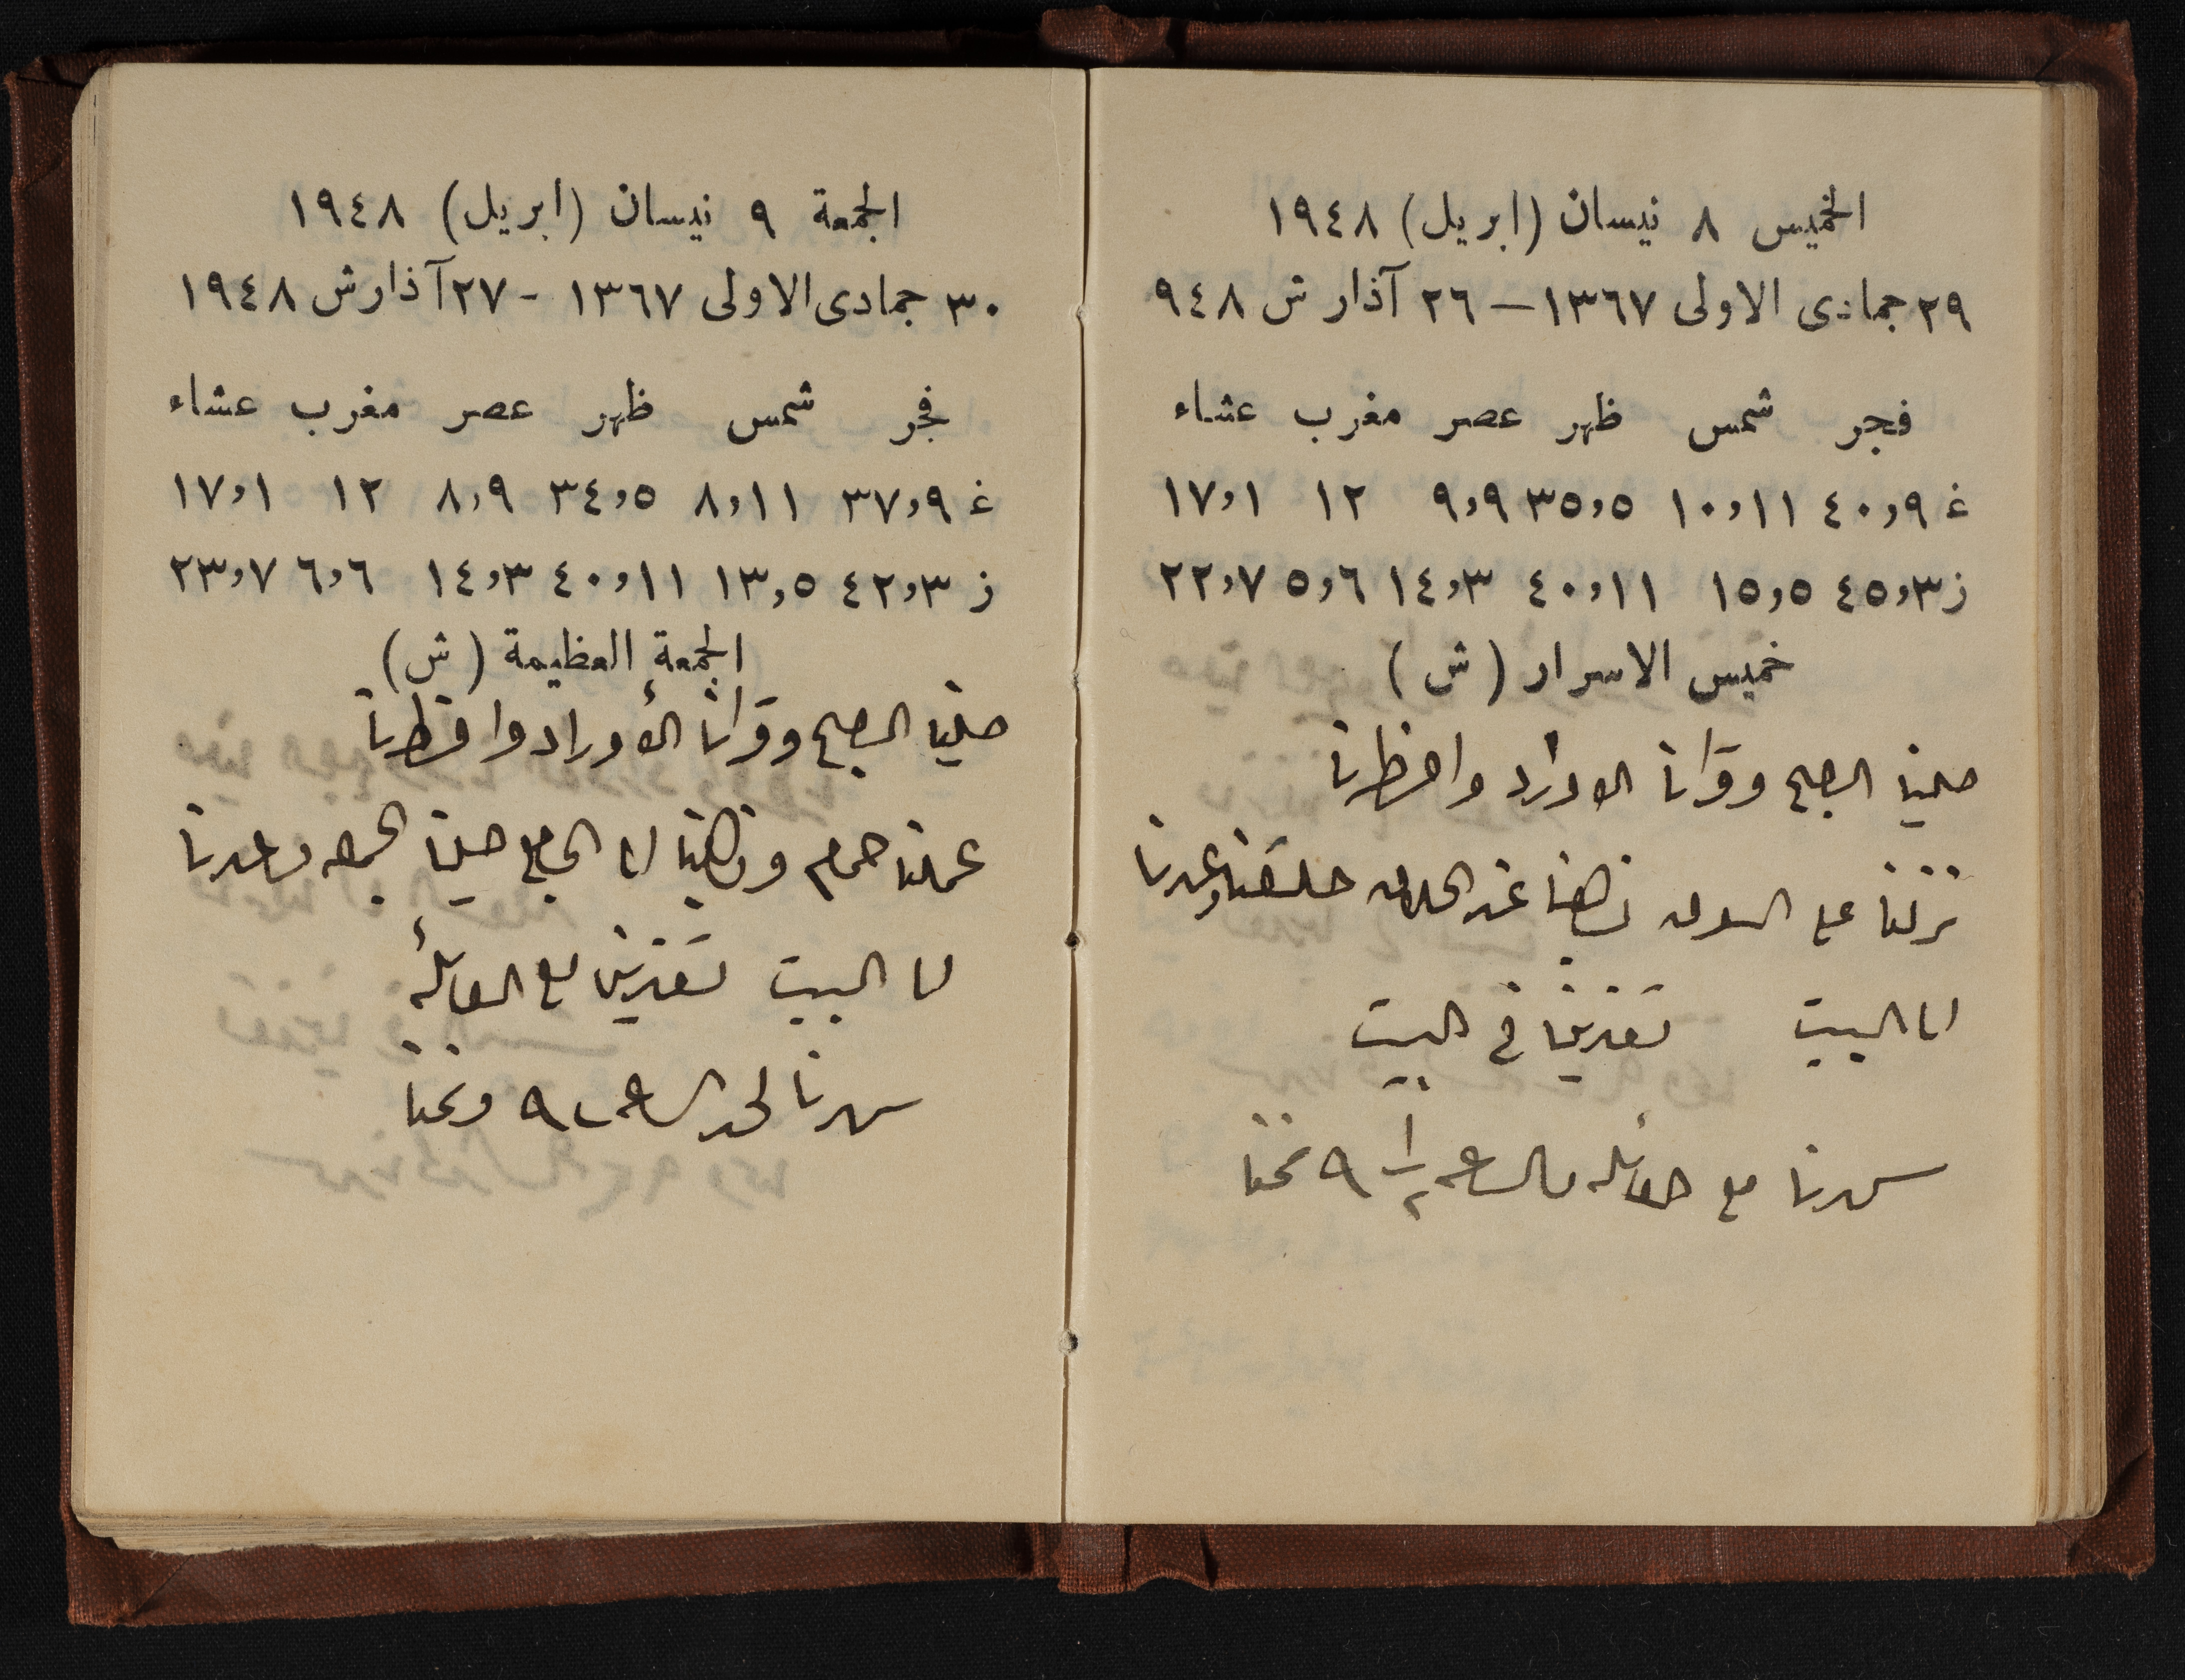 الخميس ٨ نيسان (ابريل) ١٩٤٨
٢٩ جمادى الاولى ١٣٦٧ – ٢٦ آذار ش ٩٤٨
فجر شمس ظهر عصر مغرب عشاء
غ ٤٠,٩ ١٠,١١ ٣٥,٥ ٩,٩ ١٢ ١٧,١
ز ٤٥,٣ ١٥,٥ ٤٠,١١ ١٤,٣ ٥,٦ ٢٢,٧
خميس الاسرار (ش)
صلينا الصبح وقرانا الاوراد وافطرنا
نزلنا على السوق ذهبنا عند الحلاق حلقنا وعدنا
الى البيت تغدينا في البيت
سهرنا مع العائله والساعه ٩ ١/٢ نمنا
الجمعة ٩ نيسان (ابريل) ١٩٤٨
٣٠ جمادى الاولى ١٣٦٧ - ٢٧ آذار ش ١٩٤٨
فجر شمس ظهر عصر مغرب عشاء
غ ٣٧,٩ ٨,١١ ٣٤,٥ ٨,٩ ١٢ ١٧,١
ز ٤٢,٣ ١٣,٥ ٤٠,١١ ١٤,٣ ٦,٦ ٢٣,٧
الجمعة العظيمة (ش)
صلينا الصبح وقرأنا الأوراد وافطرنا
عملنا حمام وذهبنا الى الجامع صلينا الجمعه وعدنا
الى البيت تغدينا مع العائلة
سهرنا لحد الساعه ٩ ونمنا